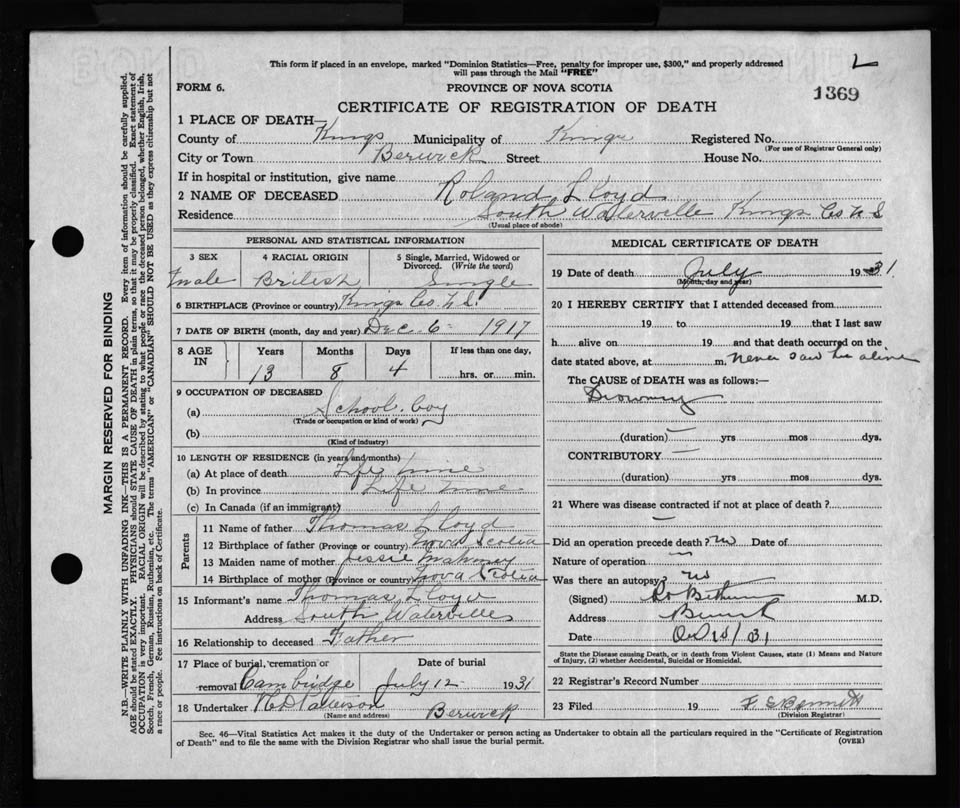 This form if placed in an envelope, marked "Dominion Statistics—Free, penalty for improper use, $300," and properly addressed
will pass through the Mail "FREE"
FORM 6. PROVINCE OF NOVA SCOTIA
1369
CERTIFICATE OF REGISTRATION OF DEATH
1 PLACE OF DEATH—
County of Kings Municipality of Kings Registered No.
(For use of Registrar General only)
City or Town Berwick Street House No.
If in hospital or institution, give name
2 NAME OF DECEASED Roland Lloyd
Residence South Waterville Kings Co N S
(Usual place of abode)
PERSONAL AND STATISTICAL INFORMATION
3 SEX 4 RACIAL ORIGIN 5 Single, Married, Widowed or
Divorced. (Write the word)
male British Single
6 BIRTHPLACE (Province or country) Kings Co. N.S.
7 DATE OF BIRTH (month, day and year) Dec 6 1917
8 AGE IN Years Months Days If less than one day,
13 8 4 hrs. or min.
9 OCCUPATION OF DECEASED
(a) School boy
(Trade or occupation or kind of work)
(b)
(Kind of industry)
10 LENGTH OF RESIDENCE (in years and months)
(a) At place of death Life time
(b) In province Life time
(c) In Canada (if an immigrant)
Parents
11 Name of father Thomas Lloyd
12 Birthplace of father (Province or country) Nova Scotia
13 Maiden name of mother Jessie
14 Birthplace of mother (Province or country) Nova Scotia
15 Informant's name Thomas Lloyd
Address South Waterville
16 Relationship to deceased Father
17 Place of burial, cremation or Date of burial
removal Cambridge July 12 1931
18 Undertaker
(Name and address) Berwick
MEDICAL CERTIFICATE OF DEATH
19 Date of death July 1931
(Month, day and year)
20 I HEREBY CERTIFY that I attended deceased from
19 to 19 that I last saw
h alive on 19 and that death occurred on the
date stated above, at m. Never saw him alive
The CAUSE of DEATH was as follows:—
Drowning
(duration) — yrs mos dys.
CONTRIBUTORY —
(duration) yrs mos dys.
21 Where was disease contracted if not at place of death?
—
Did an operation precede death? no Date of
Nature of operation
Was there an autopsy? no
(Signed) M.D.
Address Berwick
Date 31
State the Disease causing Death, or in death from Violent Causes, state (1) Means and Nature
of Injury, (2) whether Accidental, Suicidal or Homicidal.
22 Registrar's Record Number
23 Filed 19 Bennett
(Division Registrar)
Sec. 46—Vital Statistics Act makes it the duty of the Undertaker or person acting as Undertaker to obtain all the particulars required in the "Certificate of Registration
of Death" and to file the same with the Division Registrar who shall issue the burial permit. (OVER)
MARGIN RESERVED FOR BINDING
N.B.—WRITE PLAINLY WITH UNFADING INK—THIS IS A PERMANENT RECORD. Every item of information should be carefully supplied.
AGE should be stated EXACTLY. PHYSICIANS should STATE CAUSE OF DEATH in plain terms, so that it may be properly classified. Exact statement of
OCCUPATION is very important. RACIAL ORIGIN will be described by stating to what people or race the deceased person belonged, whether English, Irish,
Scotch, French, German, Russian, Ruthenian, etc. The terms "AMERICAN" or "CANADIAN" SHOULD NOT BE USED as they express citizenship but not
a race or people. Fee instructions on back of Certificate.